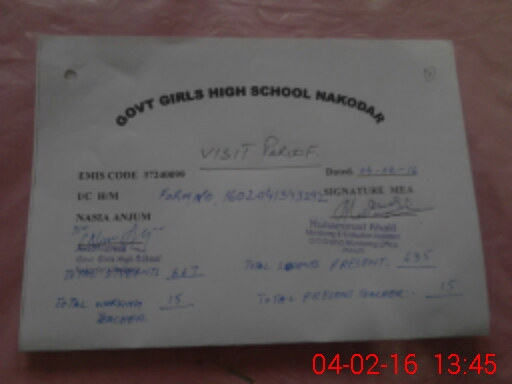 GOVT GIRLS HIGH SCHOOL NAKODAR
VISIT
EMIS CODE 37240099 Dated: 04-02-16
I/C H/M Form No. SIGNATURE MEA
NASIA ANJUM
Muhammad Khalil
Monitoring & Evaluation Assistant
Govt. Girls High School
TOTAL STUDENTS 667 TOTAL STUDENTS PRESENT: 635
TOTAL WORKING TEACHER 15 TOTAL PRESENT TEACHER:- 15
04-02-16 13:45